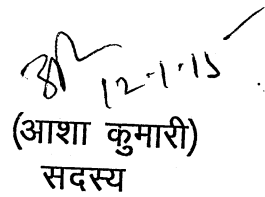 12.1.15
(आशा कुमारी)
सदस्य